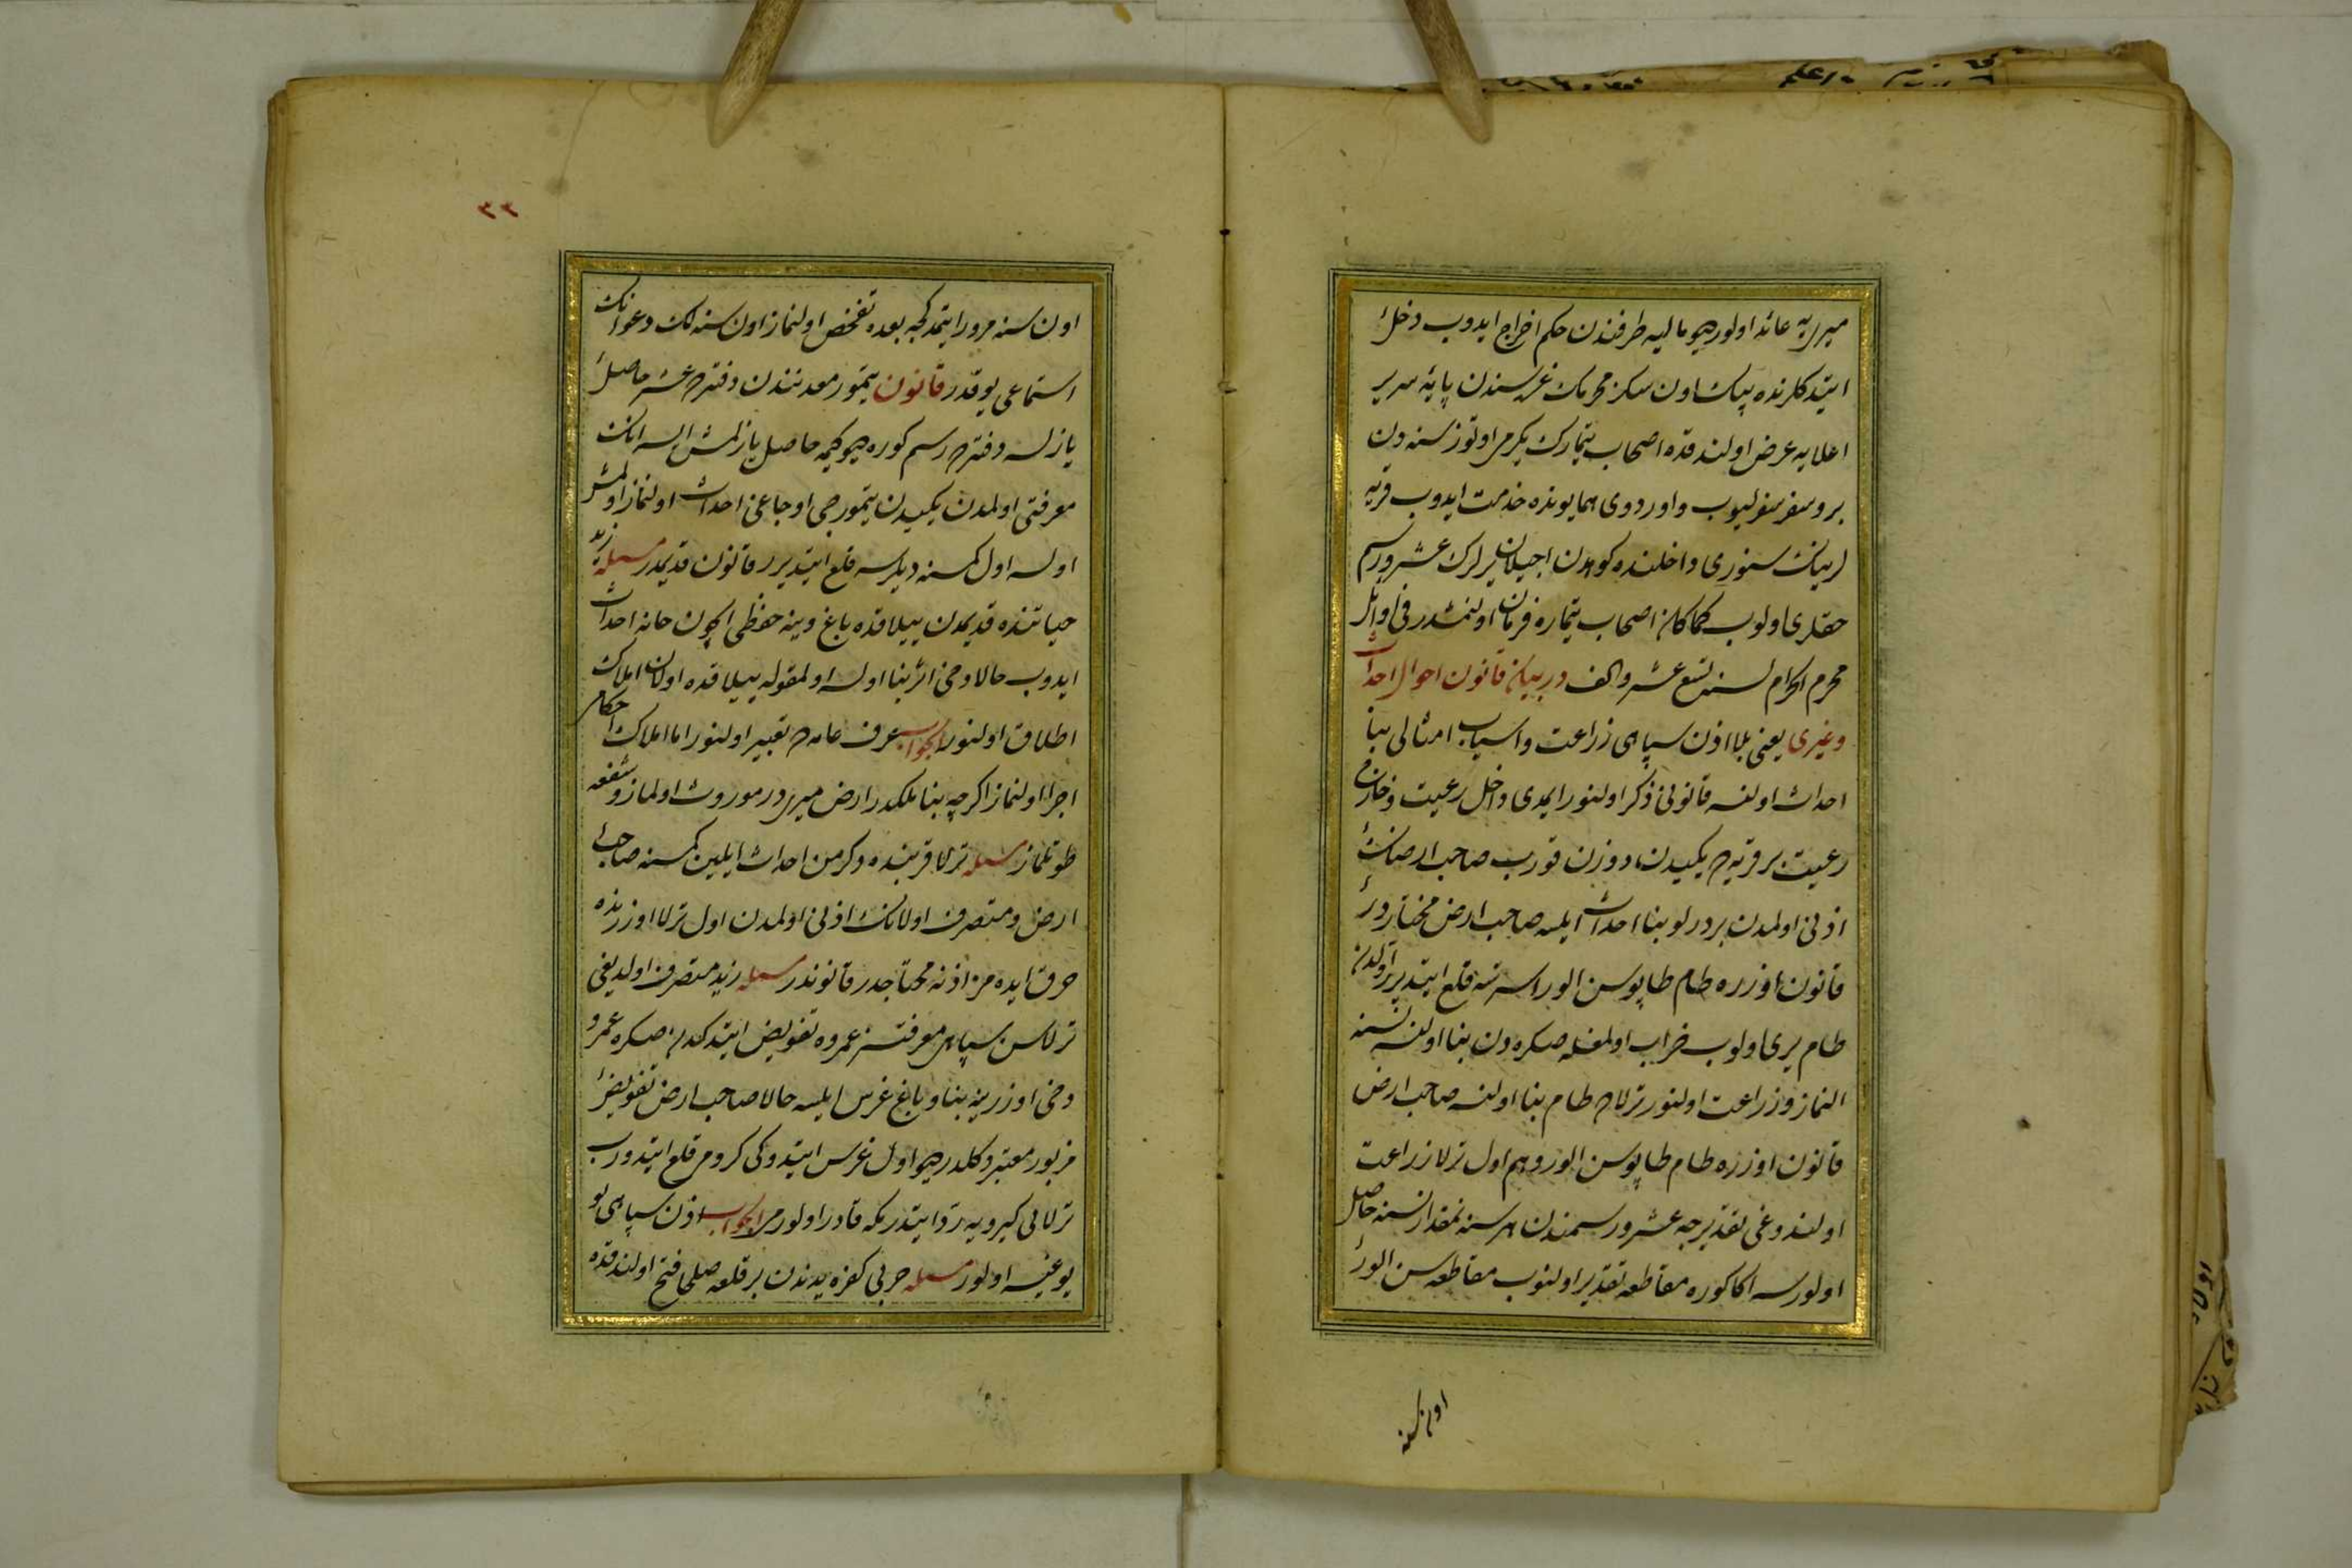 میری‌یه عائد اولور دیو مالیه طرفندن حکم اخراج ایدوب دخل
ایتدکلرنده بیک اون سکز محرمنک غره‌سندن پایهٔ سریر
اعلایه عرض اولندقده اصحاب تیمارک یکرمی اوتوز سنه‌دن
برو سفر سفرلیوب واوردوی همایونده خدمت ایدوب قریه
لرینک سنوری داخلنده کوهدن اچیلان یرلرک عشر ورسم
حقلری اولوب کماکان اصحاب تیماره فرمان اولنمشدر فی اوائل
محرم الحرام لسنه تسع عشر والف در بیان قانون احوال احداث
وغیری یعنی بلا اذن سپاهی زراعت واسیاب امثالی بنا
احداث اولنسه قانونی ذکر اولنور ایمدی داخل رعیت وخارج
رعیت بر قریه‌ده یکیدن دوزن قورب صاحب ارضک
اذنی اولمدن بر درلو بنا احداث ایلسه صاحب ارض مختاردر
قانون اوزره طام طاپوسن الور استرسه قلع ایتدیرر اولدن
طام یری اولوب خراب اولمغله صکره‌دن بنا اولنسه نسنه
النماز وزراعت اولنور ترلاده طام بنا اولنسه صاحب ارض
قانون اوزره طام طاپوسن الور وهم اول ترلا زراعت
اولندوغی تقدیرجه عشر ورسمندن هر سنه نمقدار نسنه حاصل
اولورسه اکا کوره مقاطعه تقدیر اولنوب مقاطعه‌سن الور
اون سنه
٣٣
اون سنه مرور ایتمدکجه بعده تفحص اولنماز اون سنه‌لک دعوانک
استماعی یوقدر قانون تیمور معدنندن دفترده عشر حاصل
یازلسه دفترده رسم کوره دیو کیمه حاصل یازلمش ایسه انک
معرفتی اولمدن یکیدن تیمورجی اوجاغی احداث اولنماز اولمش
اولسه اول کمسنه دیلرسه قلع ایتدیرر قانون قدیمدر مسئله زید
حیاتنده قدیمدن ییلاقده باغ وینه حفظی ایچون خانه احداث
ایدوب حالا دخی اثر بنا اولسه اولمقوله ییلاقده اولان املاک
اطلاق اولنورمی الجواب عرف عامه‌ده تعبیر اولنور اما املاک احکامی
اجرا اولنماز اکرچه بنا ملکدر ارض میریدر موروث اولماز وشفعه
طوتلماز مسئله ترلا قربنده دکرمن احداث ایلین کمسنه صاحب
ارض ومتصرف اولانک اذنی اولمدن اول ترلا اوزرنده
حرق ایده‌مز اذنه محتاجدر قانوندر مسئله زید متصرف اولدیغی
ترلاسن سپاهی معرفتسز عمروه تفویض ایتدکدن صکره عمرو
دخی اوزرینه بنا وباغ غرس ایلسه حالا صاحب ارض تفویض
مزبور معتبر دکلدر دیو اول غرس ایتدوکی کرومی قلع ایتدورب
ترلایی کیرویه رد ایتدرمکه قادر اولورمی الجواب اذن سپاهی یو
یوغیسه اولور مسئله حربی کفره یدندن بر قلعه صلحا فتح اولندقده